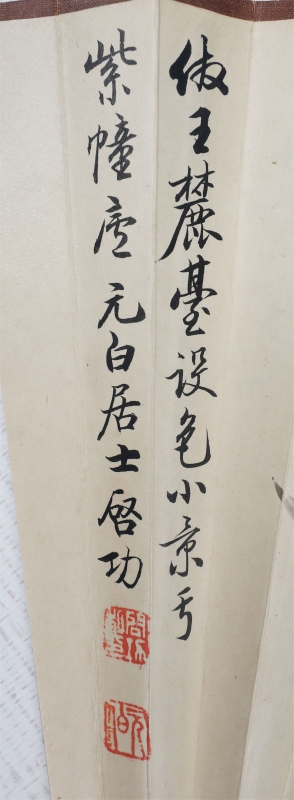 倣王麓臺设色小景于
紫幢庐元白居士啓功